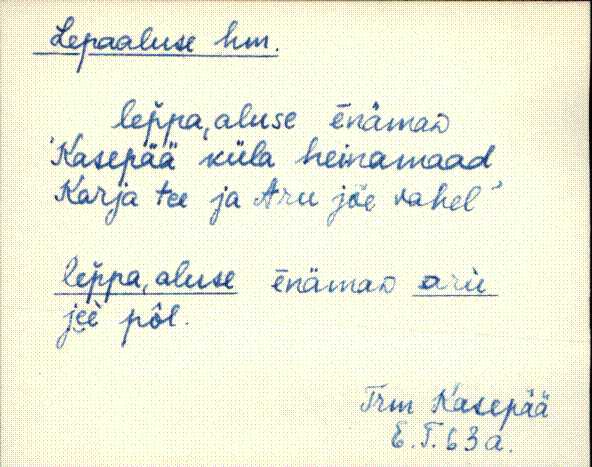 Lepaaluse hm.
lep̆pa,aluse ēnämaᴅ
'Kasepää küla heinamaad
Karja tee ja Aru jõe vahel'
lep̆pa,aluse ēnämaᴅ arü
jeè pôl.
Trm Kasepää
E.T. 63a.